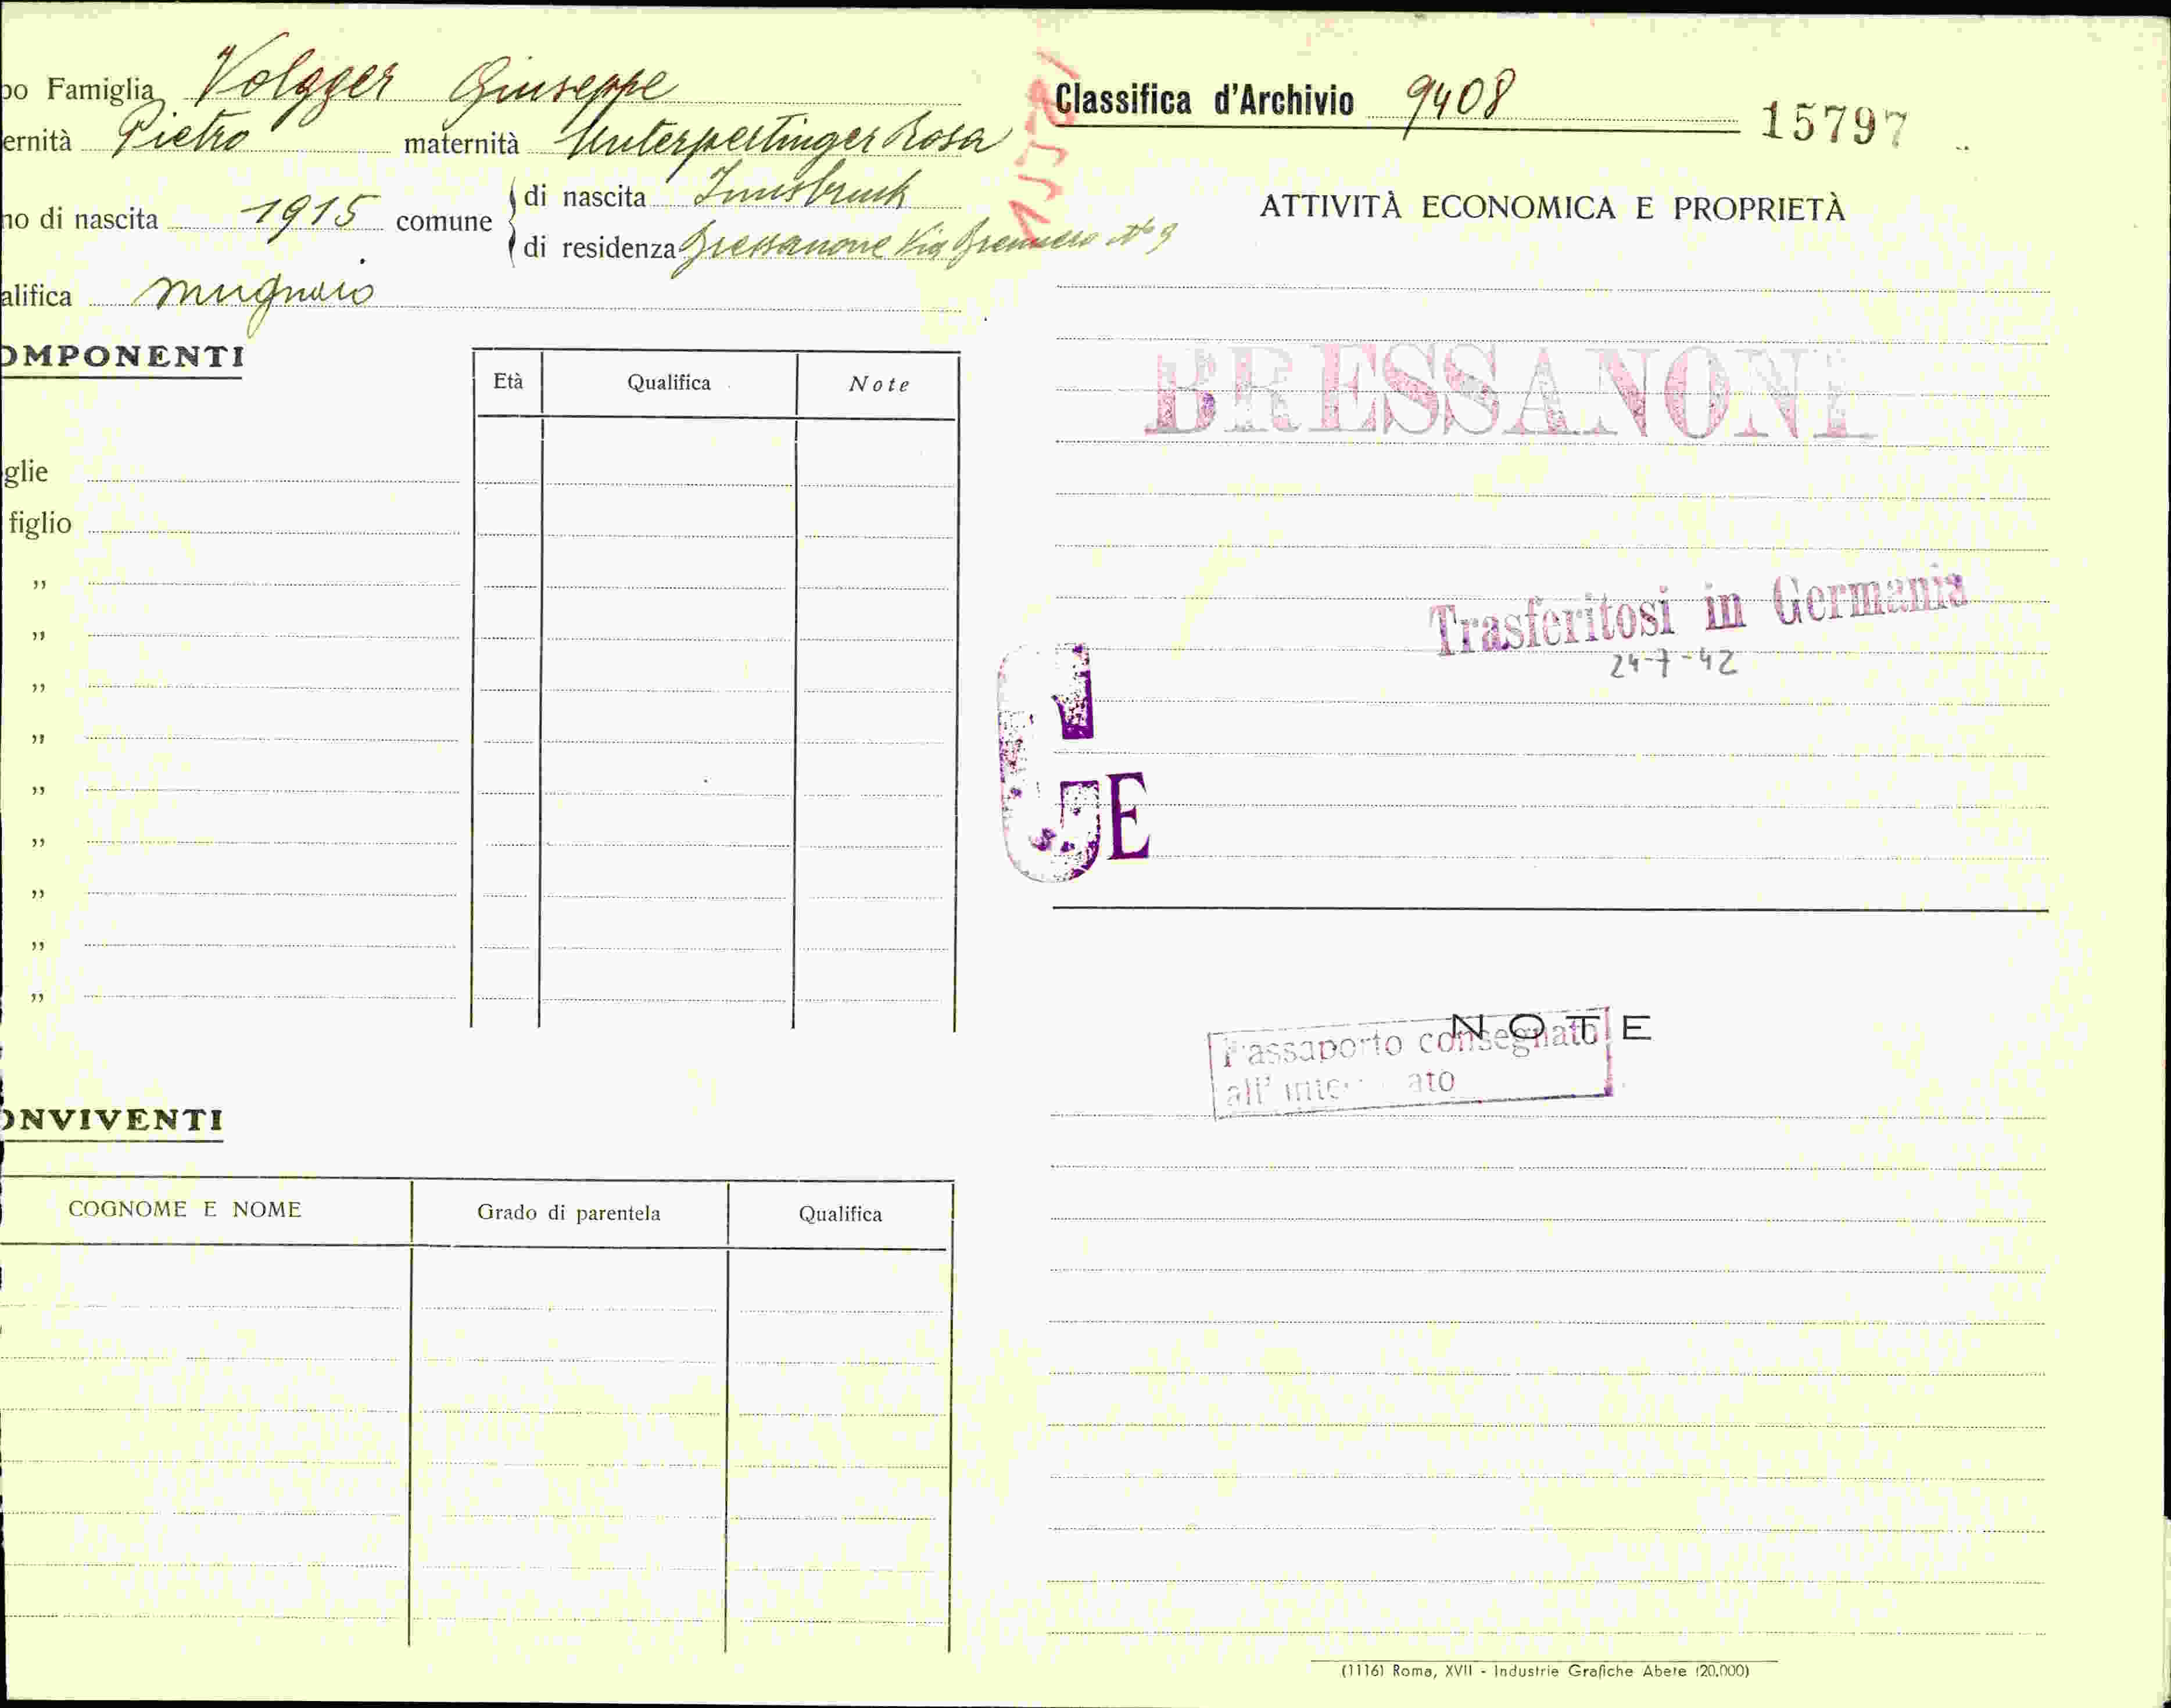 po Famiglia Volgger Giuseppe
ernità Pietro maternità Unterpertinger Rosa
no di nascita 1915 comune di nascita Innsbruck
di residenza Bressanone Via Brennero No 9
alifica mugnaio
OMPONENTI
Età Qualifica Note
glie
figlio
"
"
"
"
"
"
"
"
"
ONVIVENTI
COGNOME E NOME Grado di parentela Qualifica
Classifica d'Archivio 9408 15797
ATTIVITÀ ECONOMICA E PROPRIETÀ
BRESSANONE
Trasferitosi in Germania
24-7-42
E
NOTE
Passaporto consegnato
(1116) Roma, XVII - Industrie Grafiche Abete (20.000)